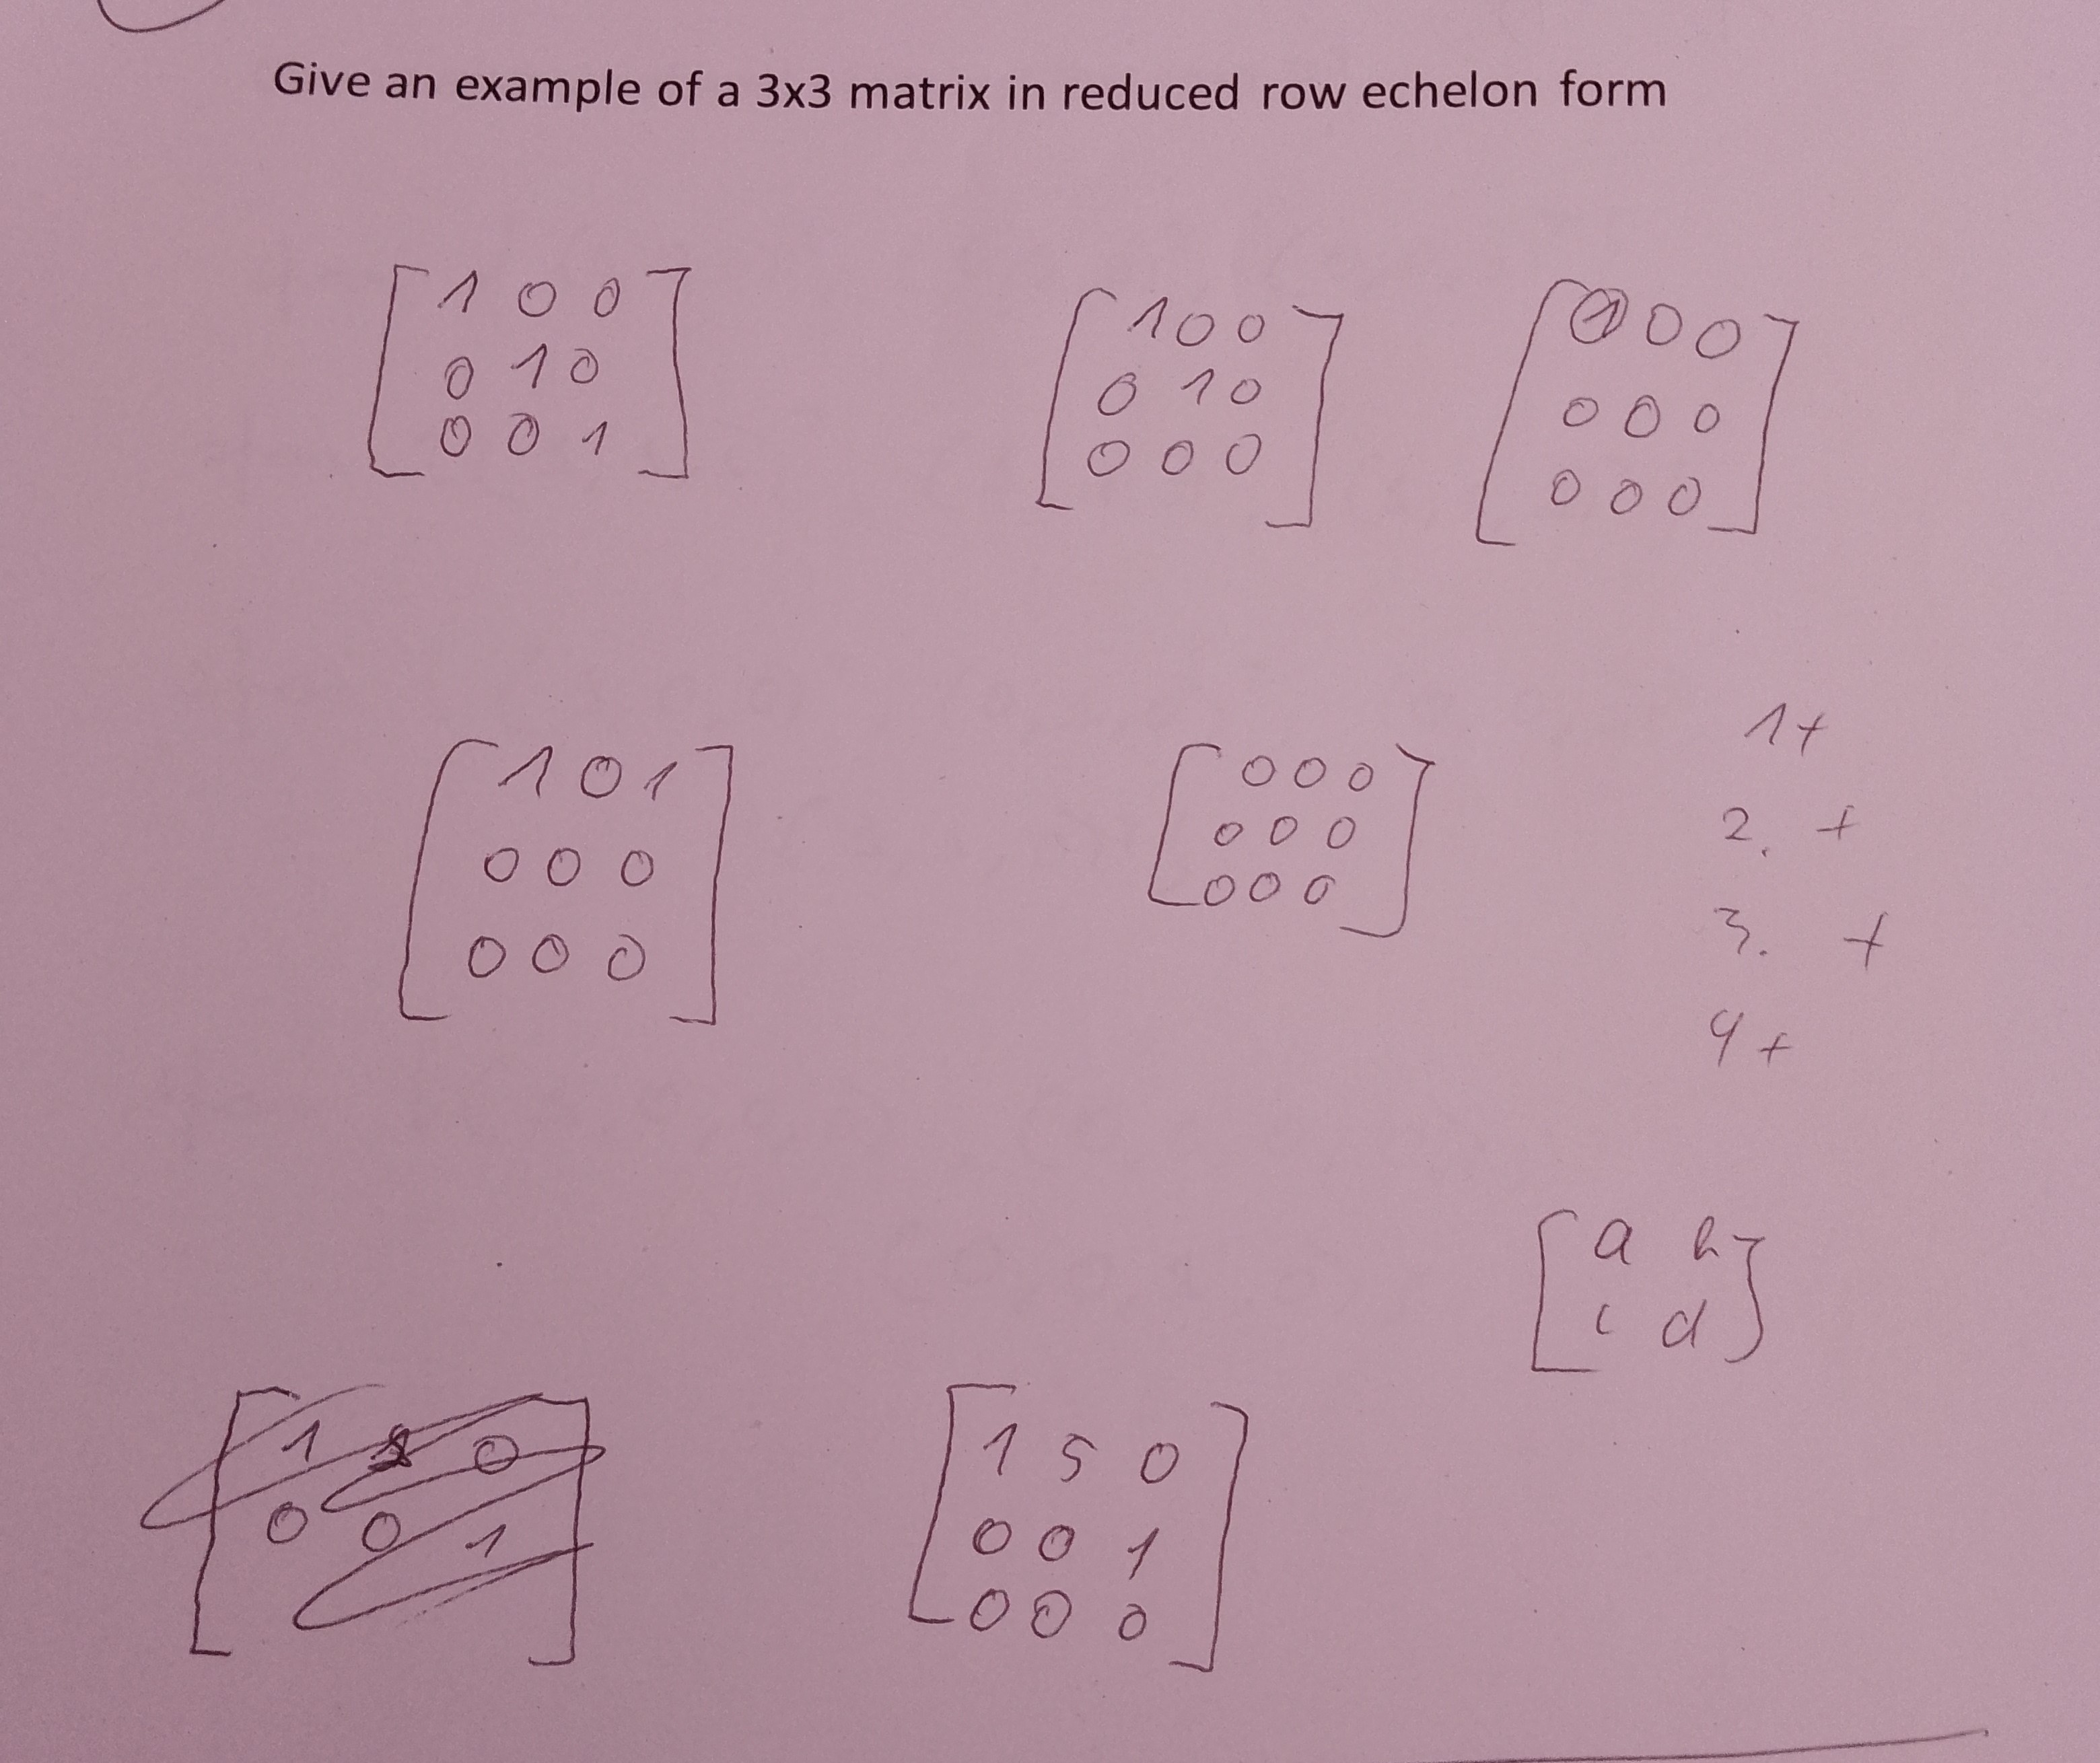 Give an example of a 3x3 matrix in reduced row echelon form
1 0 0
0 1 0
0 0 1
1 0 0
0 1 0
0 0 0
1 0 0
0 0 0
0 0 0
1 0 1
0 0 0
0 0 0
0 0 0
0 0 0
0 0 0
1 +
2. +
3. +
4 +
a b
c d
1 0
0 0 1
1 5 0
0 0 1
0 0 0